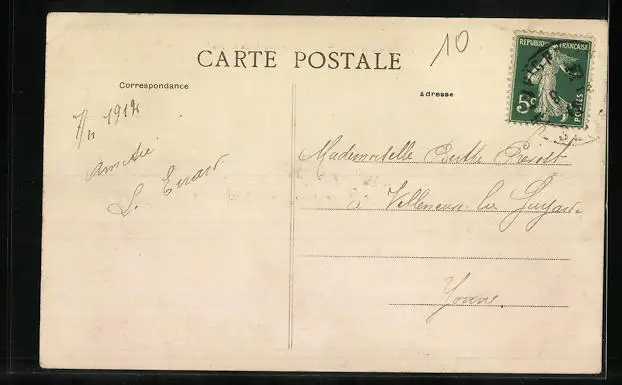 10
CARTE POSTALE
REPUBLIQUE FRANÇAISE
5c
POSTES
Correspondance
Adresse
7/11 1912
Amitié
Mademoiselle Berthe Prevost
L. Evrard
à Villeneuve la Guyard
Yonne